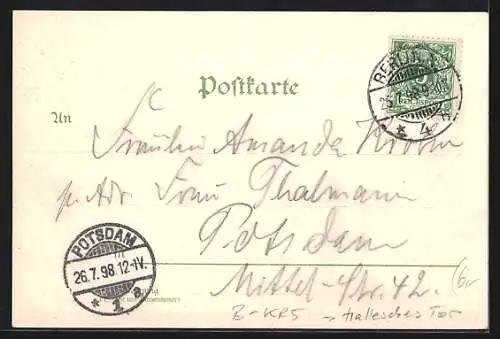 Postkarte
BERLIN
26.7.98.9-10
* 4 a
An Fräulein Amanda
p. Adr. Frau Thalmann
Potsdam
Mittel-Str. 42.
POTSDAM
26.7.98.12-1V.
* 1 a
B-KR5 → Hallesches Tor